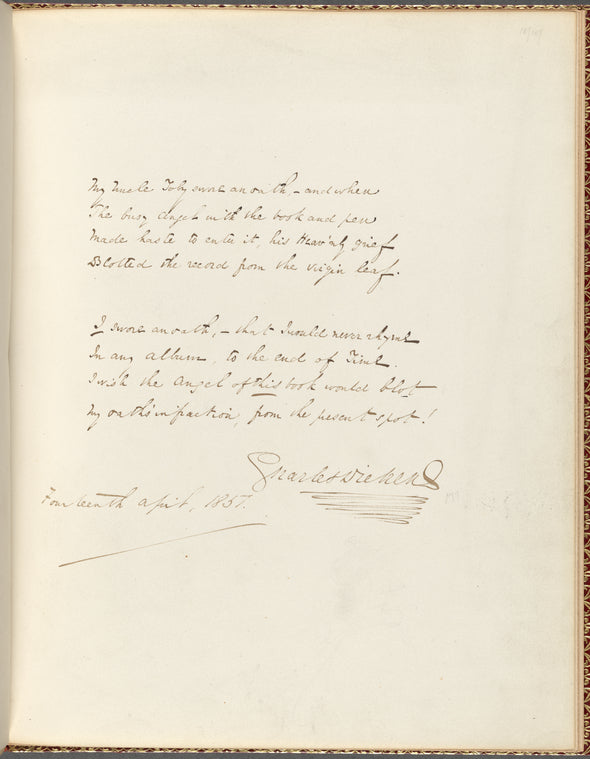 My Uncle Toby swore an oath, – and when
The busy Angel with the book and pen
Made haste to enter it, his Heav'nly grief
Blotted the record from the virgin leaf.
I swore an oath, – that I would never rhyme
In any album, to the end of Time.
I wish the Angel of this book would blot
My oath's infraction, from the present spot!
Charles Dickens
Fourteenth April, 1857.